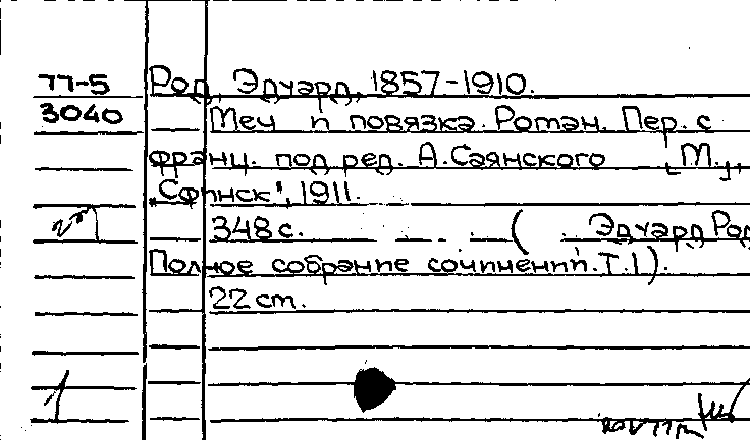 77-5 Род, Эдуард, 1857-1910.
3040 Меч и повязка. Роман. Пер. с
франц. под ред. А.Саянского [М.],
"Сфинкс", 1911.
348 с. ( Эдуард Род
Полное собрание сочинений. Т.1).
22 см.
1